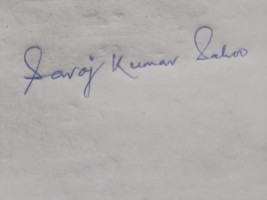 Saroj Kumar Sahoo